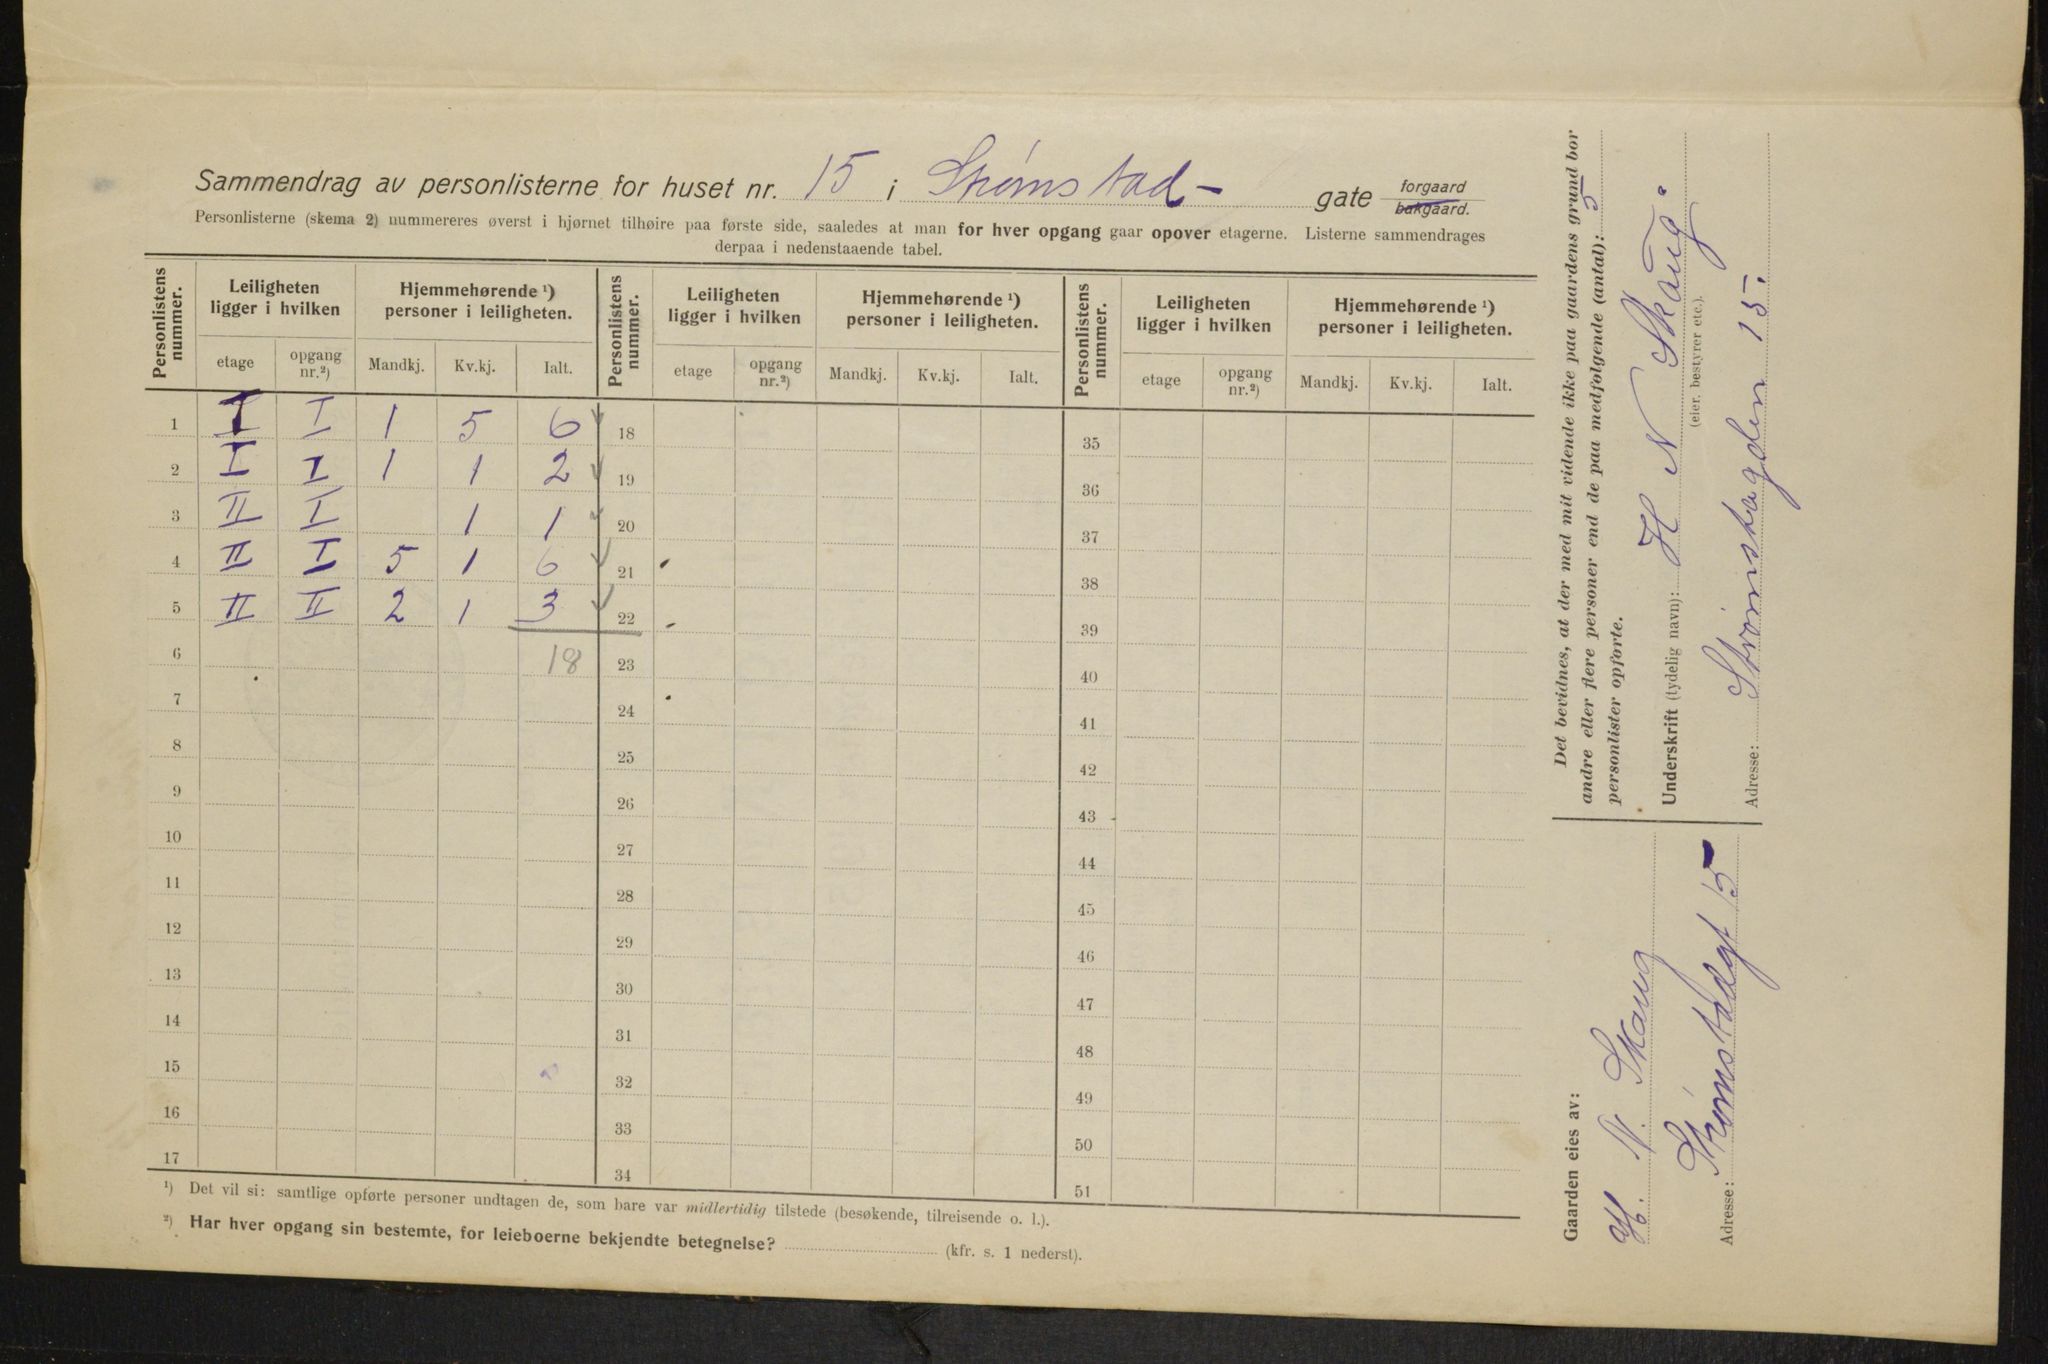 Sammendrag av personlisterne for huset nr. 15 i Strømstad- gate forgaard bakgaard.
Personlisterne (skema 2) nummereres øverst i hjørnet tilhøire paa første side, saaledes at man for hver opgang gaar opover etagerne. Listerne sammendrages
derpaa i nedenstaaende tabel.
Personlistens nummer. Leiligheten ligger i hvilken Hjemmehørende ¹) personer i leiligheten. Personlistens nummer. Leiligheten ligger i hvilken Hjemmehørende ¹) personer i leiligheten. Personlistens nummer. Leiligheten ligger i hvilken Hjemmehørende ¹) personer i leiligheten.
etage opgang nr.²) Mandkj. Kv.kj. Ialt. etage opgang nr.²) Mandkj. Kv.kj. Ialt. etage opgang nr.²) Mandkj. Kv.kj. Ialt.
1 I I 1 5 6 18 35
2 I I 1 1 2 19 36
3 II I 1 1 20 37
4 II I 5 1 6 21 38
5 II II 2 1 3 22 39
6 18 23 40
7 24 41
8 25 42
9 26 43
10 27 44
11 28 45
12 29 46
13 30 47
14 31 48
15 32 49
16 33 50
17 34 51
¹) Det vil si: samtlige opførte personer undtagen de, som bare var midlertidig tilstede (besøkende, tilreisende o. l.).
²) Har hver opgang sin bestemte, for leieboerne bekjendte betegnelse? (kfr. s. 1 nederst).
Det bevidnes, at der med mit vidende ikke paa gaardens grund bor
andre eller flere personer end de paa medfølgende (antal): 5
personlister opførte.
Underskrift (tydelig navn): H N Skaug.
(eier, bestyrer etc.).
Adresse: Strömstagden 15.
Gaarden eies av:
H. N. Skaug
Adresse: Strømstadgt 15